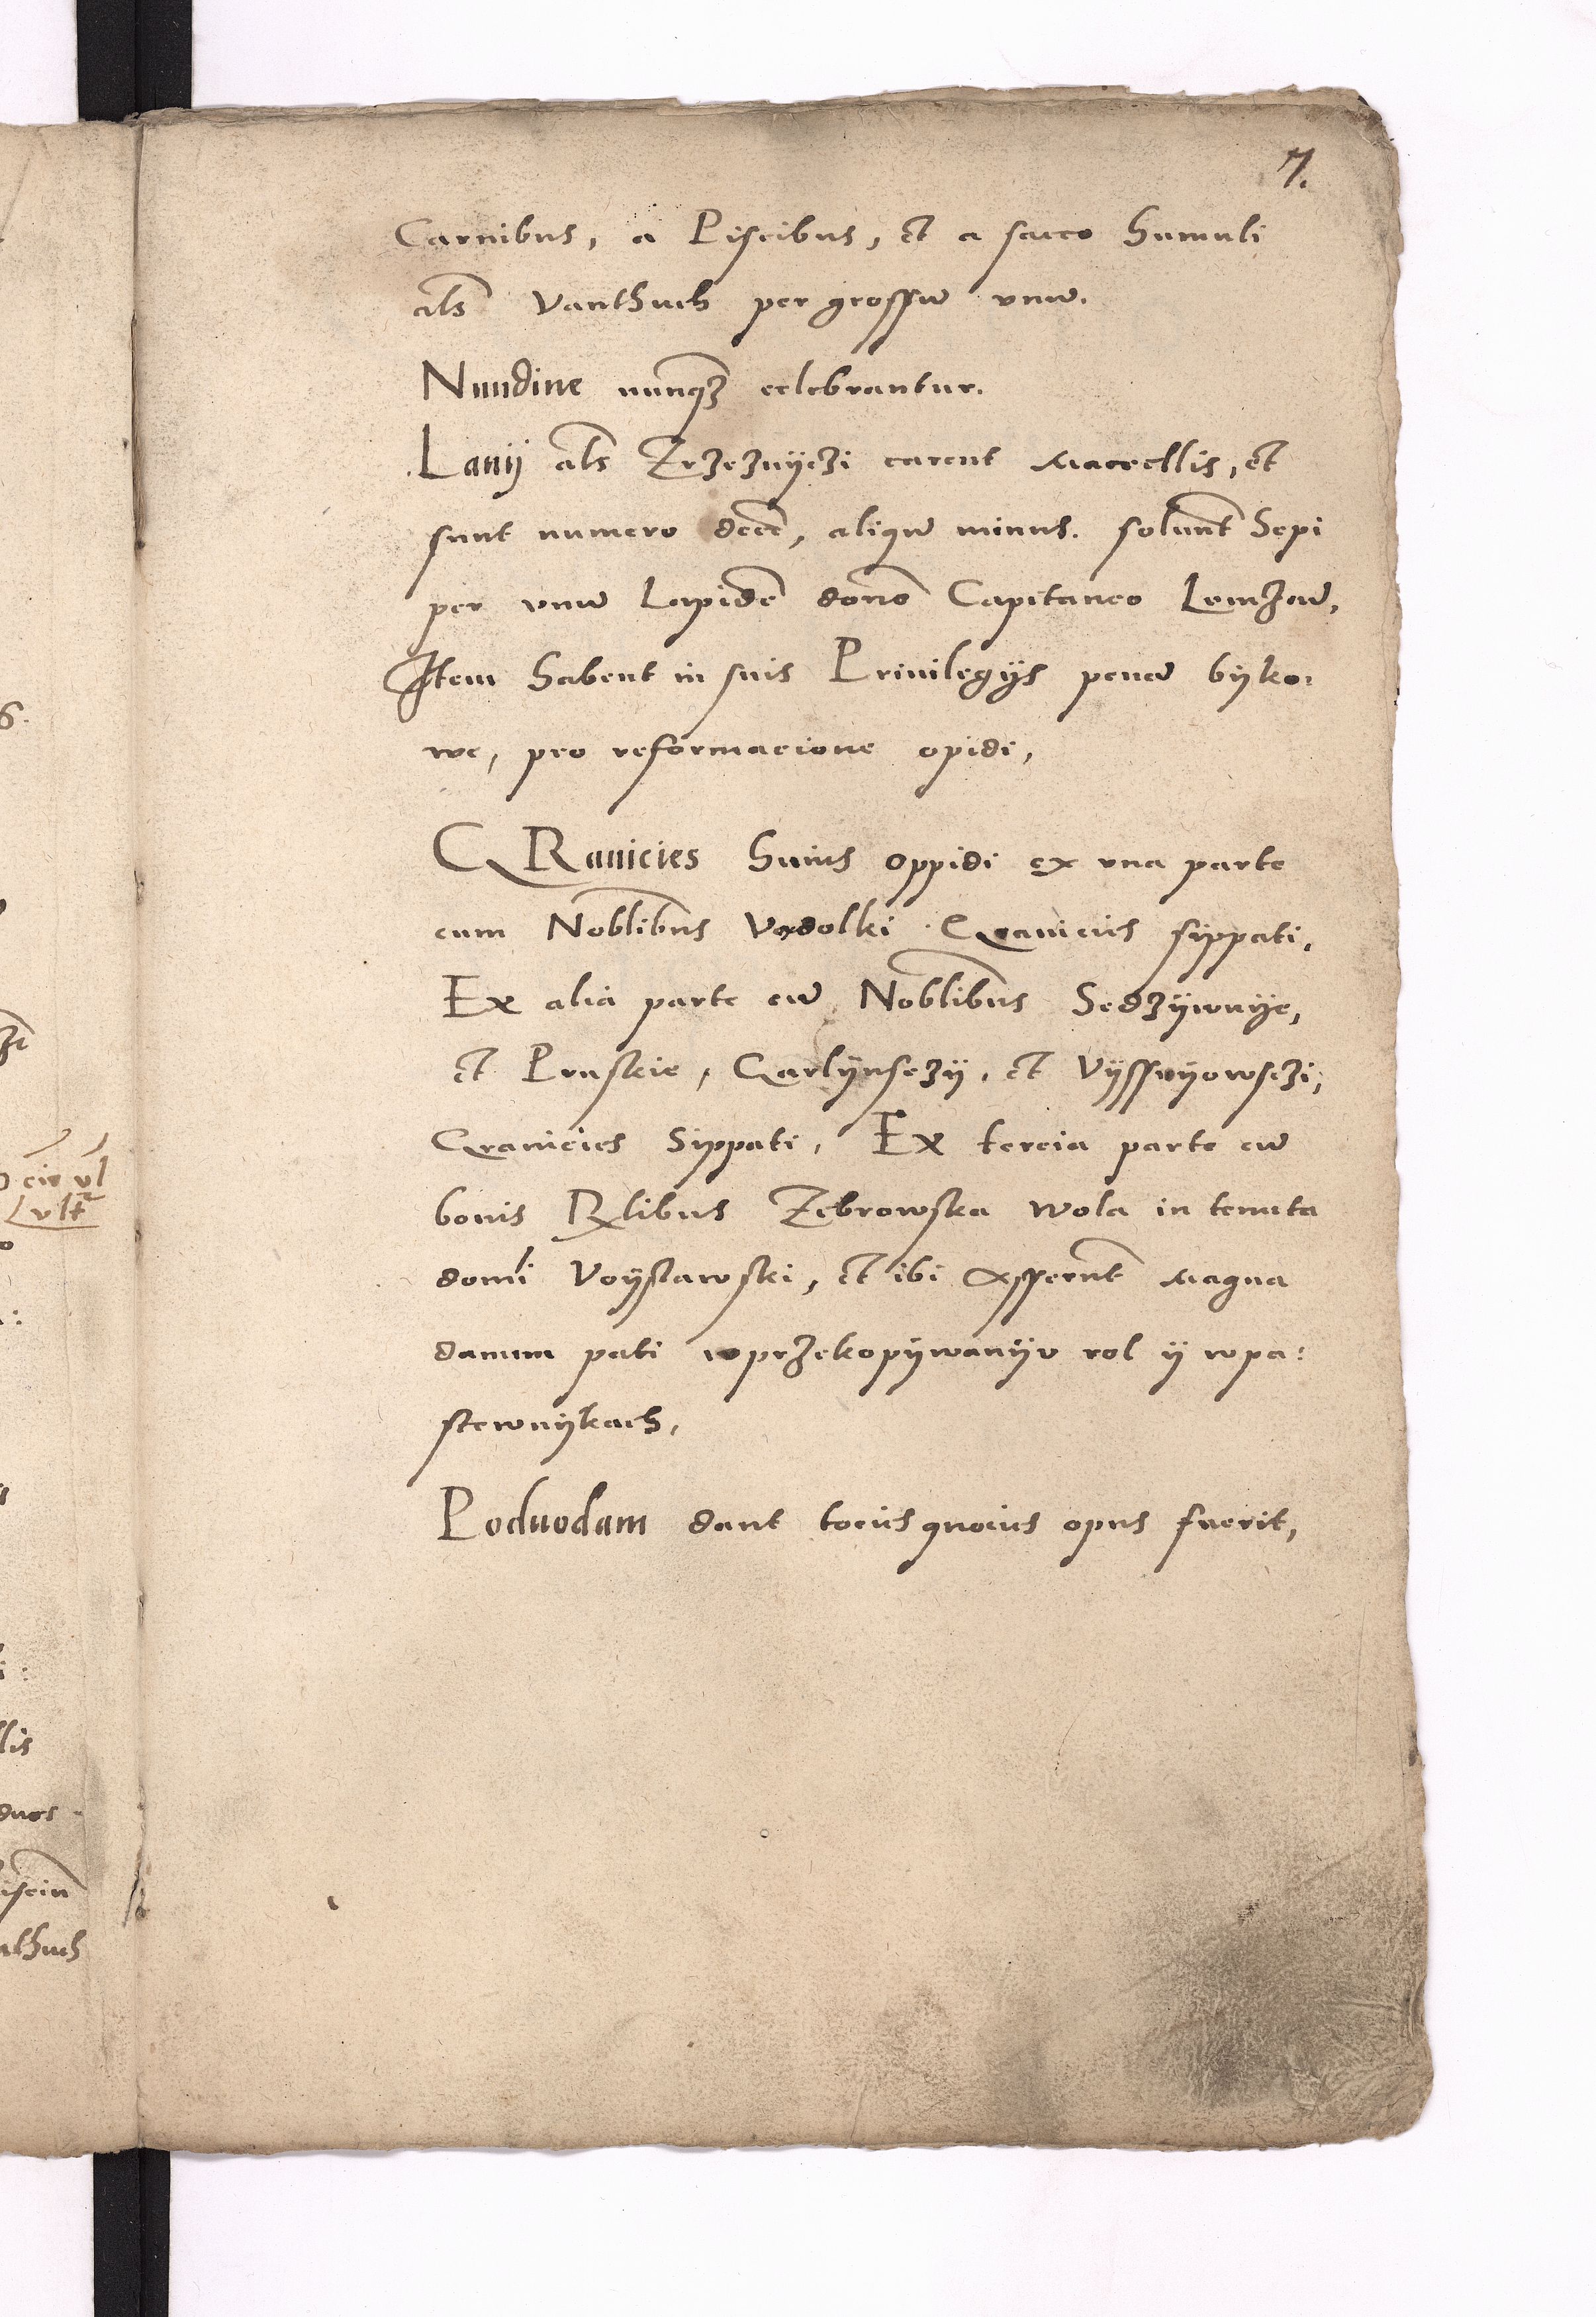 7.
Carnibus, a Piscibus, et a sacco humuli
als Vanthuch per grossū vnū.
Nundine nunq̃ȝ celebrantur.
Lanij als Rzezniczi carent Macellis, et
sunt numero decē, aliqñ minus. soluunt Sepi
per vnū Lapidē dono Capitaneo Lomzeñ,
Item habent in suis Priuilegijs penā byko:
we, pro reformacione opidi,
GRanicies huius oppidi ex vna parte
cum Noblibus Vodolki Granicies syppati,
Ex alia parte cū Noblibus Sedzÿwuÿe,
et Pruskie, Garlÿnsczÿ, et Vÿssnÿowsczi,
Granicies Sippati, Ex tercia parte cū
bonis Rlibus Zebrowska Wola in tenuta
domi Voÿslawski, et ibi Asserūt Magna
damna pati wprzekopÿwanÿv rol ÿ wpa:
stewnÿkach,
Poduodam dant tocius quocius opus fuerit,
duos